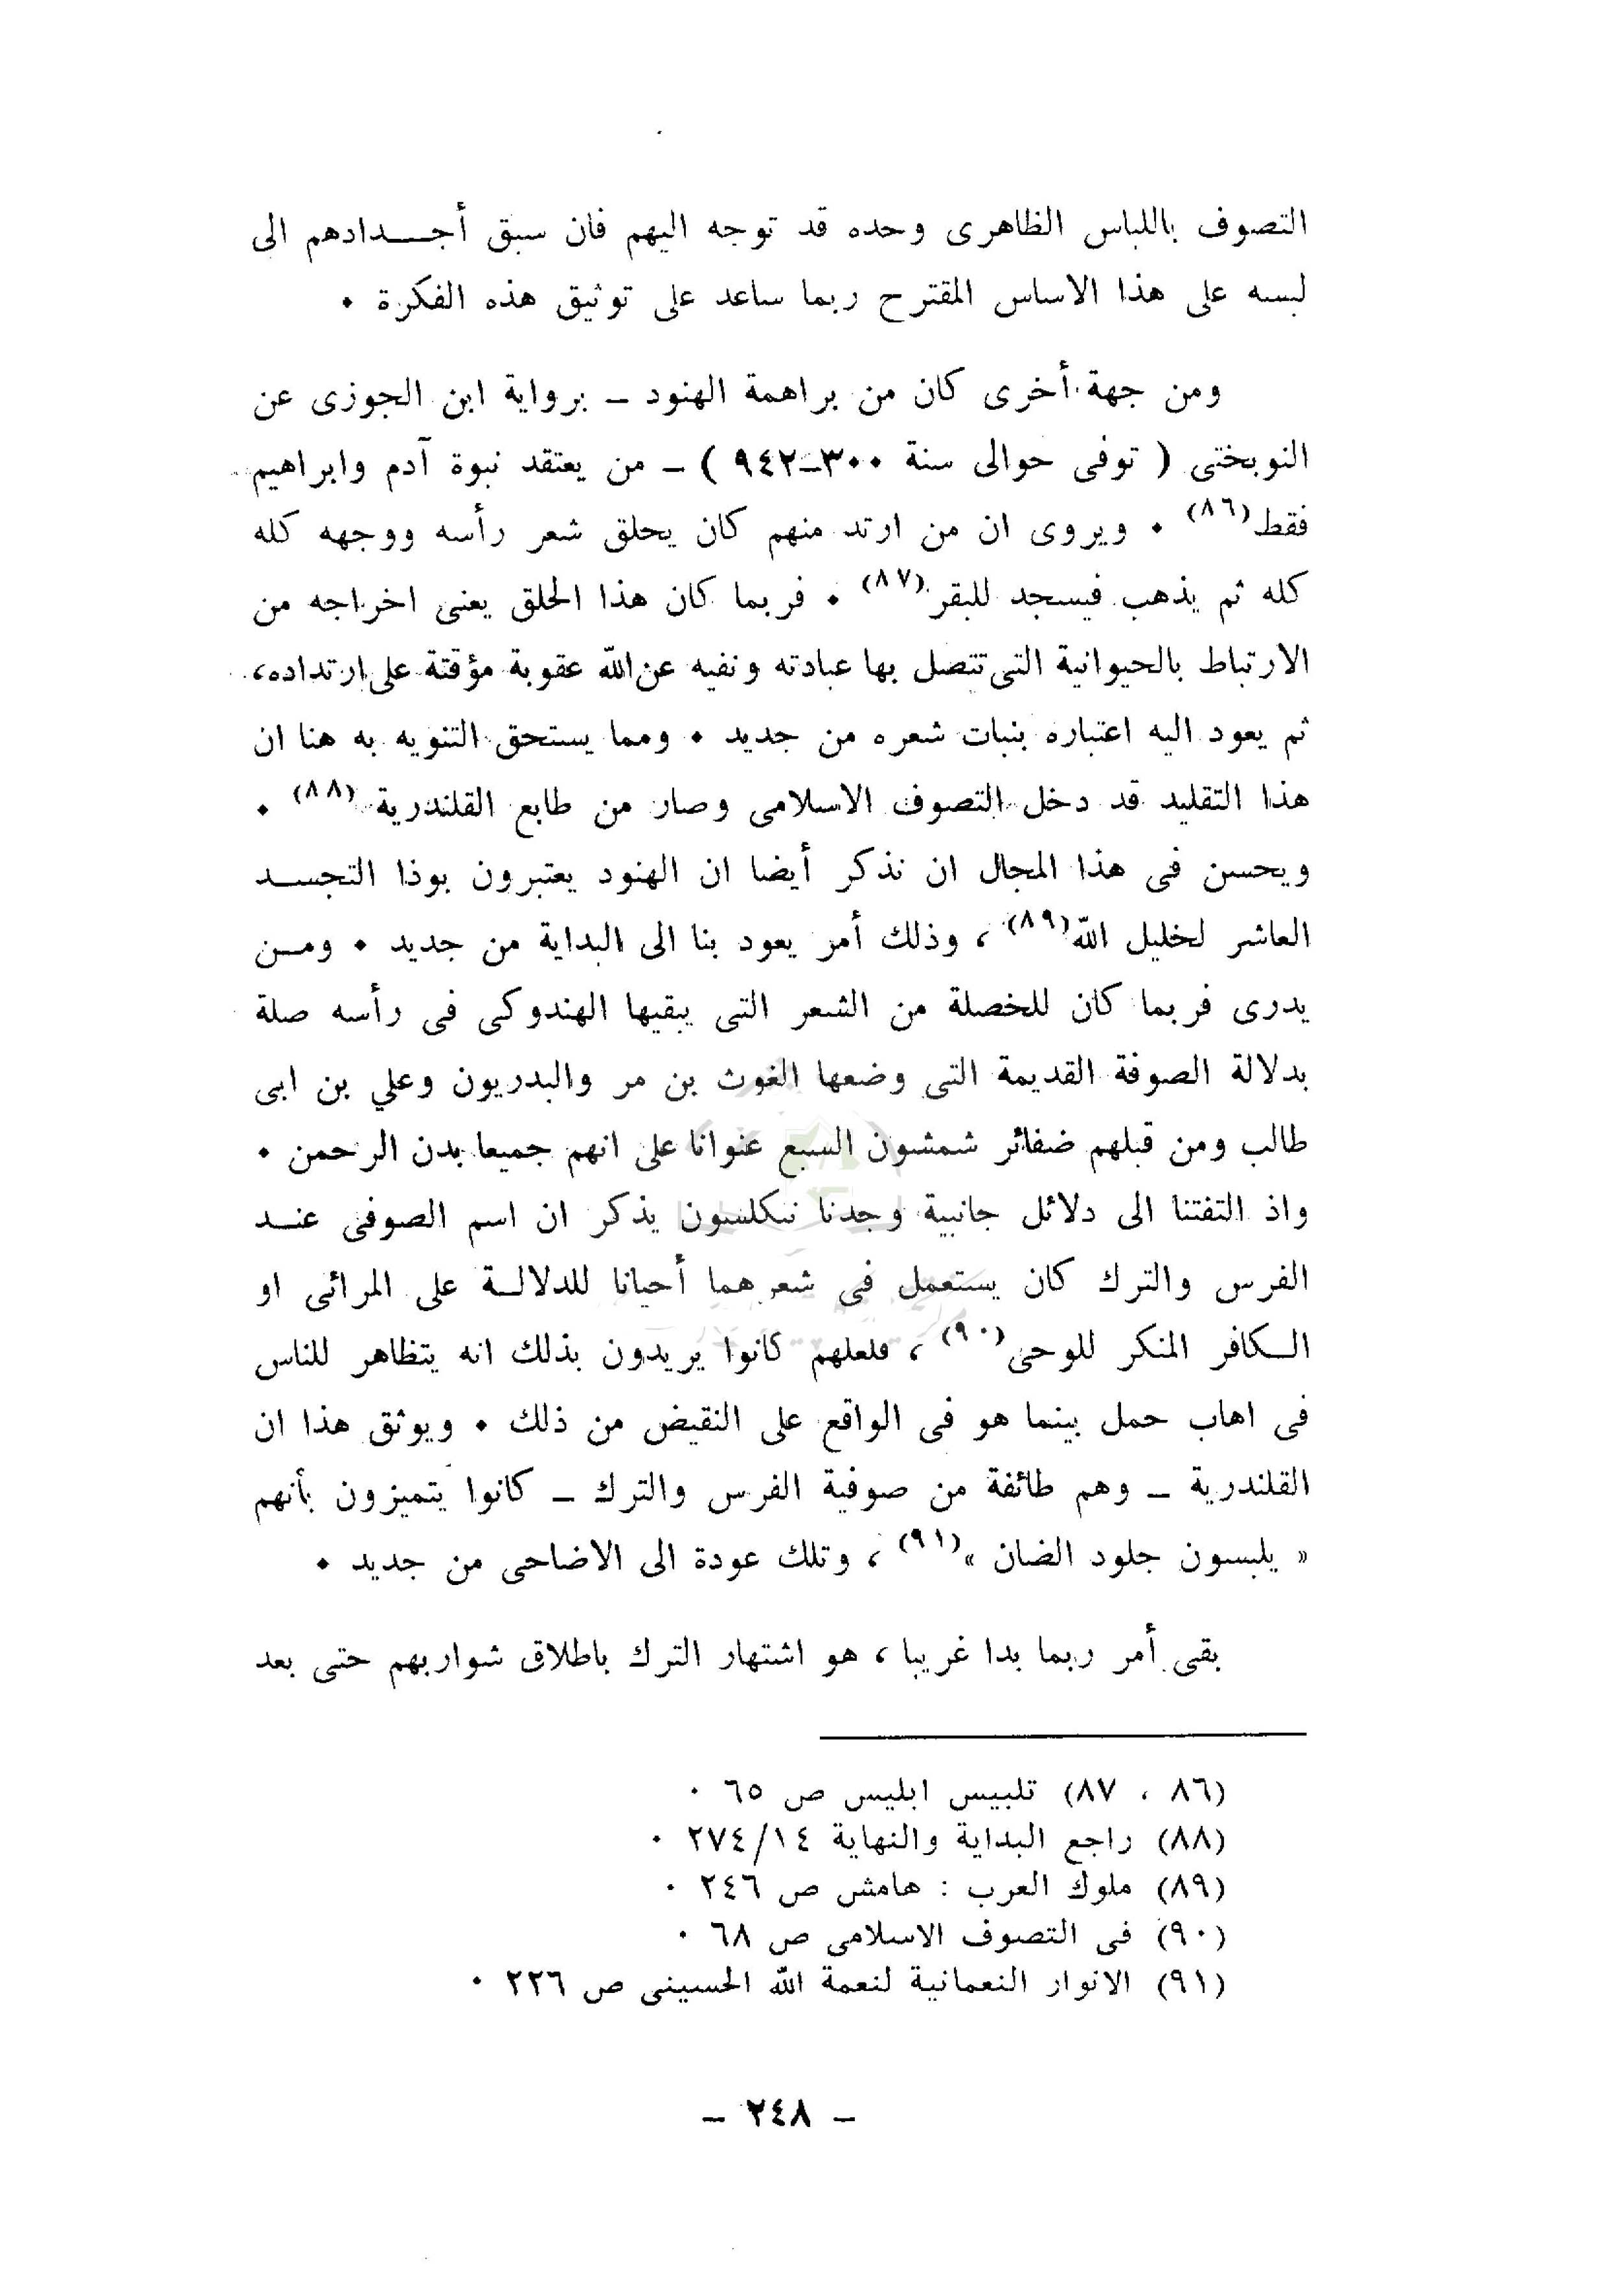 التصوف باللباس الظاهرى وحده قد توجه اليهم فان سبق أجـــدادهم الى
لبسه على هذا الاساس المقترح ربما ساعد على توثيق هذه الفكرة ٠
ومن جهة أخرى كان من براهمة الهنود – برواية ابن الجوزى عن
النوبختى ( توفى حوالى سنة ٣٠٠–٩٤٢ ) – من يعتقد نبوة آدم وابراهيم
فقط(٨٦) ٠ ويروى ان من ارتد منهم كان يحلق شعر رأسه ووجهه كله
كله ثم يذهب فيسجد للبقر(٨٧) ٠ فربما كان هذا الحلق يعنى اخراجه من
الارتباط بالحيوانية التى تتصل بها عبادته ونفيه عن الله عقوبة مؤقتة على ارتداده،
ثم يعود اليه اعتباره بنبات شعره من جديد ٠ ومما يستحق التنويه به هنا ان
هذا التقليد قد دخل التصوف الاسلامى وصار من طابع القلندرية (٨٨) ٠
ويحسن فى هذا المجال ان نذكر أيضا ان الهنود يعتبرون بوذا التجســد
العاشر لخليل الله(٨٩) ، وذلك أمر يعود بنا الى البداية من جديد ٠ ومــن
يدرى فربما كان للخصلة من الشعر التى يبقيها الهندوكى فى رأسه صلة
بدلالة الصوفة القديمة التى وضعها الغوث بن مر والبدريون وعلي بن ابى
طالب ومن قبلهم ضفائر شمشون السبع عنوانا على انهم جميعا بدن الرحمن ٠
واذ التفتنا الى دلائل جانبية وجدنا نيكلسون يذكر ان اسم الصوفى عنــد
الفرس والترك كان يستعمل فى شعرهما أحيانا للدلالــة على المرائى او
الــكافر المنكر للوحى(٩٠) ، فلعلهم كانوا يريدون بذلك انه يتظاهر للناس
فى اهاب حمل بينما هو فى الواقع على النقيض من ذلك ٠ ويوثق هذا ان
القلندرية – وهم طائفة من صوفية الفرس والترك – كانوا يتميزون بأنهم
« يلبسون جلود الضان »(٩١) ، وتلك عودة الى الاضاحى من جديد ٠
بقى أمر ربما بدا غريبا ، هو اشتهار الترك باطلاق شواربهم حتى بعد
(٨٦ ، ٨٧) تلبيس ابليس ص ٦٥ ٠
(٨٨) راجع البداية والنهاية ٢٧٤/١٤ ٠
(٨٩) ملوك العرب : هامش ص ٢٤٦ ٠
(٩٠) فى التصوف الاسلامى ص ٦٨ ٠
(٩١) الانوار النعمانية لنعمة الله الحسينى ص ٢٢٦ ٠
– ٢٤٨ –